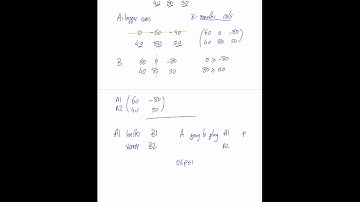 40 80 50
A: bigger rows B: smaller cols
0 -60 -40
40 80 50
(60 0 -80
40 80 50)
B 60 0 -80 0 ≥ -80
40 80 50
A1 (60 -80)
A2 (40 50)
A1 better B1 A going to play A1 P
worse B2 A2
0≤p≤1